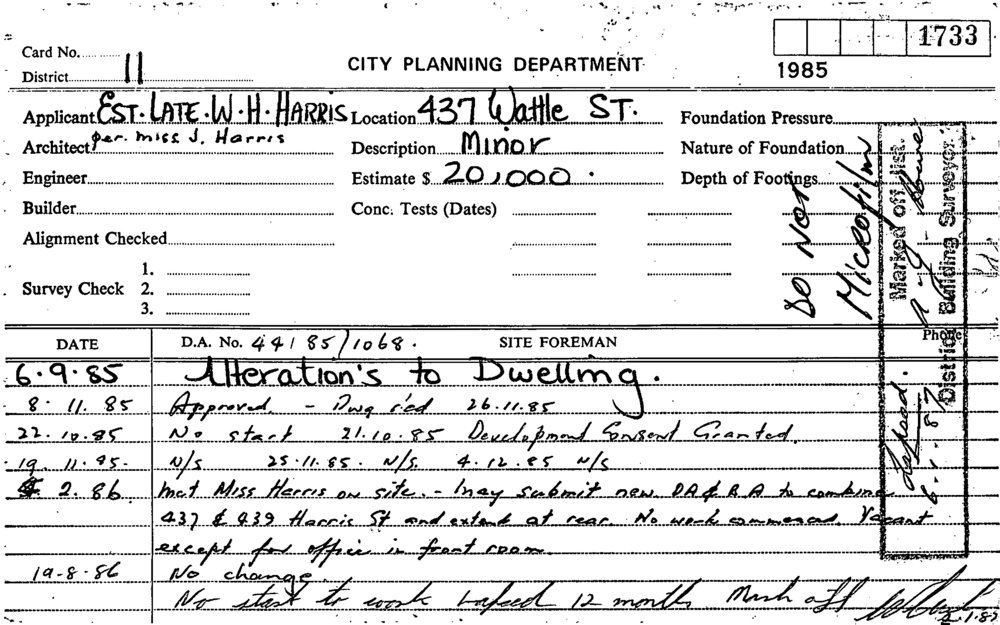 1733
Card No.
District 11
CITY PLANNING DEPARTMENT
1985
Applicant EST. LATE. W. H. HARRIS Location 437 Wattle ST. Foundation Pressure
Architect per. miss J. Harris Description Minor Nature of Foundation
Engineer Estimate $ 20,000. Depth of Footings
Builder Conc. Tests (Dates)
Alignment Checked
1.
Survey Check 2.
3.
DO NOT
Microfilm
Marked off list.
District Building Surveyor.
Lapsed.
6.1.87
DATE D.A. No. 44 85/1068. SITE FOREMAN Phone
6.9.85 Alteration's to Dwelling.
8.11.85 Approved. - Dwg 26.11.85
22.10.85 No start 21.10.85 Development Consent Granted.
19.11.85. N/S 25.11.85. N/S. 4.12.85 N/S
2.86. Met Miss Harris on site. - may submit new DA & BA to combine
437 & 439 Harris St and extend at rear. No work commenced. Vacant
except for office in front room.
19-8-86 No change.
No start to work Lapsed 12 months Mark off